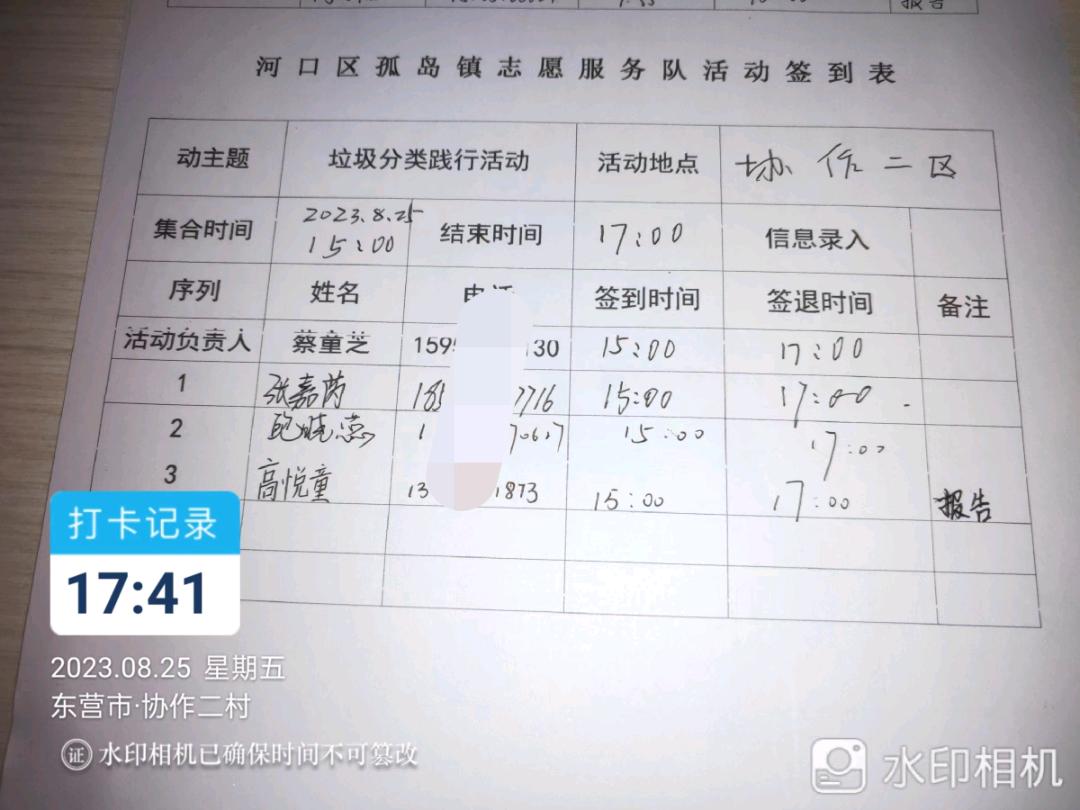 报告
河口区孤岛镇志愿服务队活动签到表
动主题 垃圾分类践行活动 活动地点 协作二区
集合时间 2023.8.25 15:00 结束时间 17:00 信息录入
序列 姓名 电话 签到时间 签退时间 备注
活动负责人 蔡童芝 159 130 15:00 17:00
1 张嘉芮 185 7716 15:00 17:00
2 鲍晓蕊 1 70617 15:00 17:00
3 高悦童 13 1873 15:00 17:00 报告
打卡记录
17:41
2023.08.25 星期五
东营市·协作二村
证 水印相机已确保时间不可篡改
水印相机